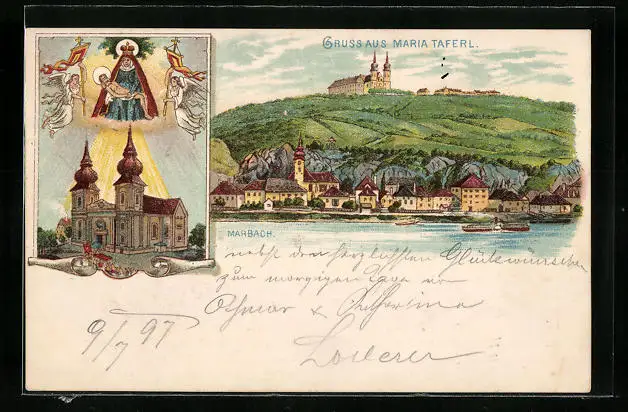 GRUSS AUS MARIA TAFERL.
MARBACH.
nebst den herzlichsten Glückwünschen
zum morgigen Tage von
Othmar & Katharina
Loderer
9/7 97